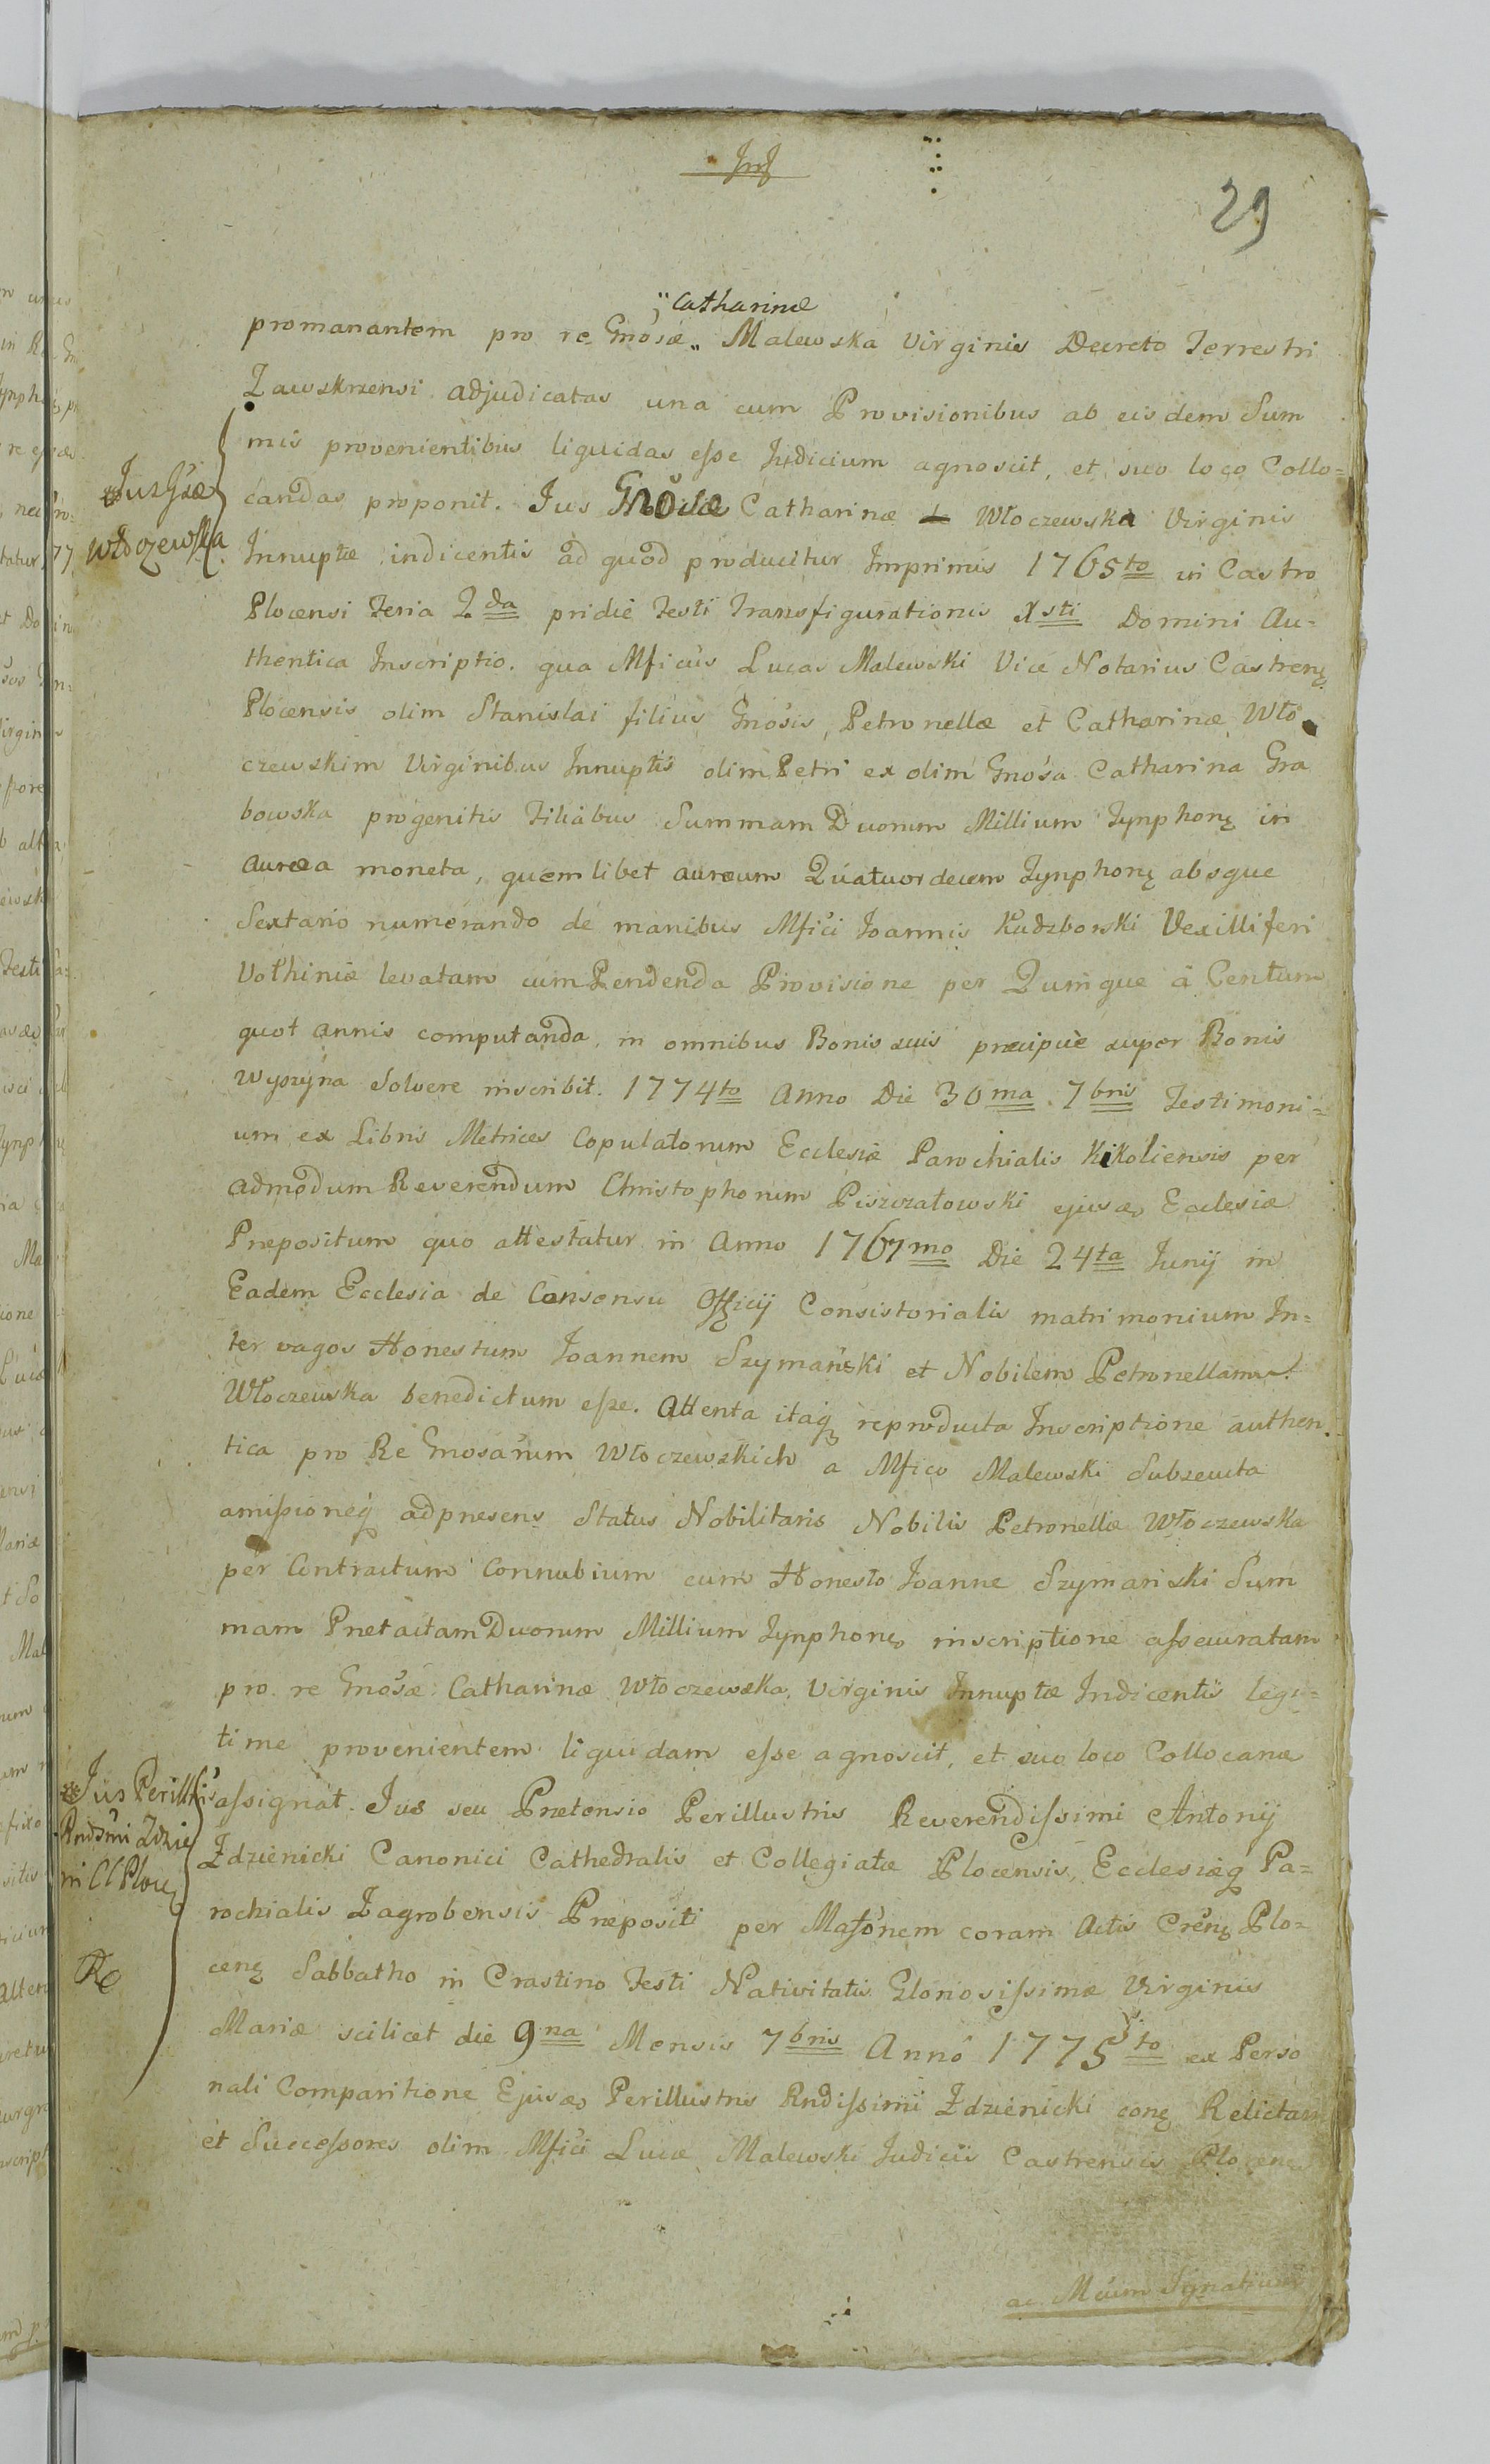 29
Catharinæ
promanantem pro re Gnosæ Malewska Virginis Decreto Terrestri
Zawskrzensi adjudicatas una cum Provisionibus ab eisdem Sum
mis provenientibus liquidas eſse Judicium agnoscit, et suo loco Collo=
candas proponit. Jus Gnosæ Catharinæ Włoczewska Virginis
Jus Gsæ
Włoczewska
Innuptæ indicentis ad quod producitur Imprimis 1765to in Castro
Plocensi Feria 2da pridie Festi Transfigurationis Xsti Domini Au=
thentica Inscriptio. qua Mficus Lucas Malewski Vice Notarius Castren
Plocensis olim Stanislai filius Gnosis Petronellæ et Catharinæ Wło
czewskim Virginibus Innuptis olim Petri ex olim Gnosa Catharina Gra
bowska progenitis Filiabus Summam Duorum Millium Tynphon in
aurea moneta, quemlibet aureum Quatuordecem Tynphon absque
Sextario numerando de manibus Mfici Joannis Kudzborski Vexilliferi
Volhiniæ levatam cum Pendenda Provisione per Quinque à Centum
quot annis computanda, in omnibus Bonis suis præcipuè super Bonis
Wyszyna Solvere inscribit. 1774to Anno Die 30ma 7bris Testimoni=
um ex Libris Metrices Copulatorum Ecclesiæ Parochialis Kikoliensis per
admodum Reverendum Christophorum Piszczatowski ejusd Ecclesiæ
Præpositum quo attestatur in Anno 1767mo Die 24ta Junij in
Eadem Ecclesia de Consensu Officij Consistorialis matrimonium In=
ter vagos Honestum Joannem Szymański et Nobilem Petronellam
Włoczewska benedictum eſse. Attenta itaq reproducta Inscriptione authen
tica pro Re Gnosarum Włoczewskich a Mfico Malewski Subsecuta
amiſsioneq adpræsens Status Nobilitaris Nobilis Petronellæ Włoczewska
per Contractum Connubium cum Honesto Joanne Szymański Sum
mam Prætactam Duorum Millium Tynphon inscriptione aſsecuratam
pro re Gnosæ Catharinæ Włoczewska Virginis Innuptæ Indicentis legi=
time provenientem liquidam eſse agnoscit, et suo loco Collocand
aſsignat. Jus seu Prætensio Perillustris Reverendiſsimi Antonij
Jus Perillris
Rndsmi Zdzie
CC Ploc
Zdzienicki Canonici Cathedralis et Collegiatæ Plocensis, Ecclesiæq Pa=
rochialis Zagrobensis Præpositi per coram Actis Plo=
cen Sabbatho in Crastino Festi Nativitatis Gloriosiſsimæ Virginis
Mariæ scilicet die 9na Mensis 7bris Anno 1775to ex Perso
nali Comparitione Ejusd Perillustris Rndiſsimi Zdzienicki con Relictam
et Succeſsores olim Mfici Lucæ Malewski Judicis Castrensis Plocen
ac Mcum Ignatium